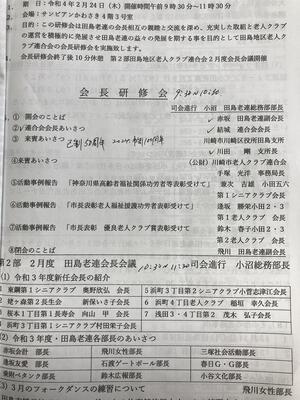 日時：令和4年2月24日（木）開催時間午前9時30分～11時30分
会場：サンピアンかわさき4階3号室
目的：この研修会は田島老連の会長相互の親睦と交流を深め、充実した取組と老人クラブの運営を積極的に発展させ田島老連の益々の発展を期する事を目的として田島地区老人クラブ連合会の会長研修会を実施致します。
会長研修会終了後10分休憩 第2部田島地区老人クラブ連合会2月度会長会議開催
会長研修会 9:30～10:20
司会進行 小沼 田島老連総務部部長
①開会のことば 赤坂 田島老連副会長
②連合会会長あいさつ 結城 連合会会長
③来賓あいさつ 川崎市川崎区役所田島支所
川田 剛 支所長
④来賓あいさつ （公財）川崎市老人クラブ連合会
手塚 光洋 事務局長
⑤活動事例報告 「神奈川県高齢者福祉関係功労者等表彰受けて」 兼次 吉雄 小田五六
第1シニアクラブ会長
⑥活動事例報告 「市長表彰老人福祉援護功労者表彰受けて」 逢坂 勝栄小田2・3
第1老人クラブ 会長
⑦活動事例報告 「市長表彰 優良老人クラブ表賞受けて」 鈴木 春子小田2・3
第2老人クラブ 会長
⑧閉会のことば 飛川 田島老連副会長
第2部 2月度 田島老連会長会議 10:30～11:30 司会進行 小沼総務部長
(1) 令和3年度新任会長の紹介
1 東藤第1シニアクラブ 奥野欣弘 会長
5 浜町3丁目第2シニアクラブ 小菅志津江会長
2 姥ヶ森第2長生会 新保いさ子会長
6 浜町4丁目老人クラブ 稲垣 幸久会長
3 桜本1丁目第1長寿会 向山 甲 会長
7 浅田3・4丁目第2 茂木 弘子会長
4 浜町3丁目第1シニアクラブ村田栄子会長
(2) 令和3年度・田島老連各部長のあいさつ
赤坂会計 部長
飛川女性部長
三塚社会活動部長
赤坂友愛 部長
石渡ゲートボール部長
春日G・G部長
乗附ペタンク部長
鈴木広報部長
小谷文化部長
(3) 3月のフォークダンスの練習について 飛川女性部長